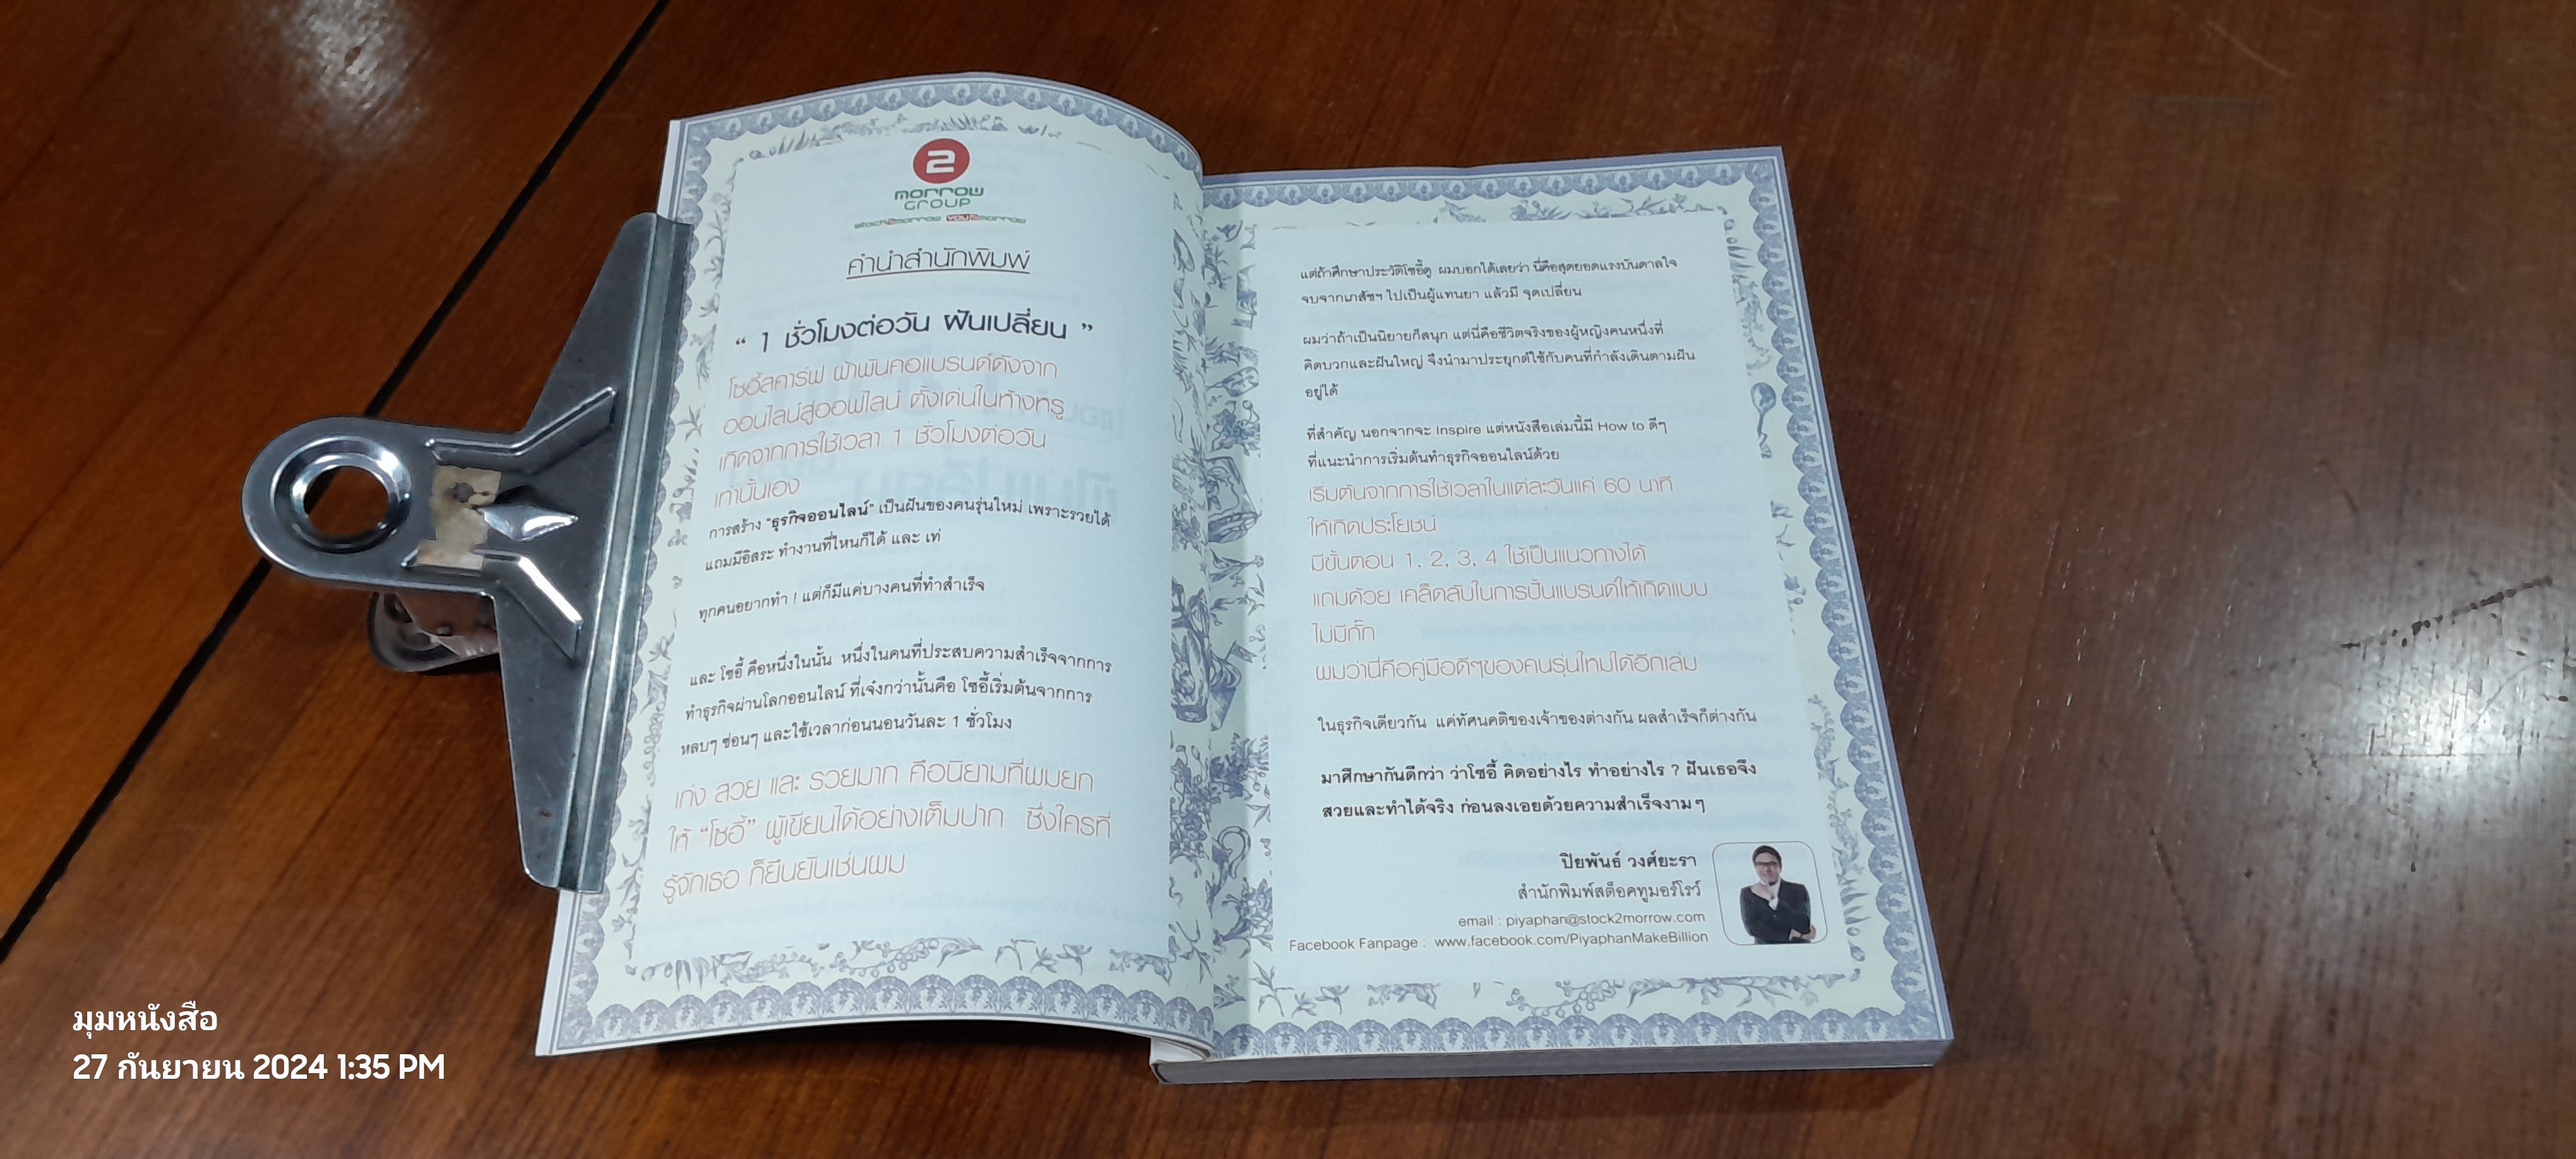 2
morrow
GROUP
stock2morrow you2morrow
คำนำสำนักพิมพ์
“ 1 ชั่วโมงต่อวัน ฝันเปลี่ยน ”
โซอี้สคาร์ฟ ผ้าพันคอแบรนด์ดังจาก
ออนไลน์สู่ออฟไลน์ ตั้งเด่นในห้างหรู
เกิดจากการใช้เวลา 1 ชั่วโมงต่อวัน
เท่านั้นเอง
การสร้าง “ธุรกิจออนไลน์” เป็นฝันของคนรุ่นใหม่ เพราะรวยได้
แถมมีอิสระ ทำงานที่ไหนก็ได้ และ เท่
ทุกคนอยากทำ ! แต่ก็มีแค่บางคนที่ทำสำเร็จ
และ โซอี้ คือหนึ่งในนั้น หนึ่งในคนที่ประสบความสำเร็จจากการ
ทำธุรกิจผ่านโลกออนไลน์ ที่เจ๋งกว่านั้นคือ โซอี้เริ่มต้นจากการ
หลบๆ ซ่อนๆ และใช้เวลาก่อนนอนวันละ 1 ชั่วโมง
เก่ง สวย และ รวยมาก คือนิยามที่ผมยก
ให้ “โซอี้” ผู้เขียนได้อย่างเต็มปาก ซึ่งใครที่
รู้จักเธอ ก็ยืนยันเช่นผม
แต่ถ้าศึกษาประวัติโซอี้ดู ผมบอกได้เลยว่า นี่คือสุดยอดแรงบันดาลใจ
จบจากเภสัชฯ ไปเป็นผู้แทนยา แล้วมี จุดเปลี่ยน
ผมว่าถ้าเป็นนิยายก็สนุก แต่นี่คือชีวิตจริงของผู้หญิงคนหนึ่งที่
คิดบวกและฝันใหญ่ จึงนำมาประยุกต์ใช้กับคนที่กำลังเดินตามฝัน
อยู่ได้
ที่สำคัญ นอกจากจะ Inspire แต่หนังสือเล่มนี้มี How to ดีๆ
ที่แนะนำการเริ่มต้นทำธุรกิจออนไลน์ด้วย
เริ่มต้นจากการใช้เวลาในแต่ละวันแค่ 60 นาที
ให้เกิดประโยชน์
มีขั้นตอน 1, 2, 3, 4 ใช้เป็นแนวทางได้
แถมด้วย เคล็ดลับในการปั้นแบรนด์ให้เกิดแบบ
ไม่มีกั๊ก
ผมว่านี่คือคู่มือดีๆของคนรุ่นใหม่ได้อีกเล่ม
ในธุรกิจเดียวกัน แค่ทัศนคติของเจ้าของต่างกัน ผลสำเร็จก็ต่างกัน
มาศึกษากันดีกว่า ว่าโซอี้ คิดอย่างไร ทำอย่างไร ? ฝันเธอจึง
สวยและทำได้จริง ก่อนลงเอยด้วยความสำเร็จงามๆ
ปิยพันธ์ วงศ์ยะรา
สำนักพิมพ์สต็อคทูมอร์โรว์
email : piyaphan@stock2morrow.com
Facebook Fanpage : www.facebook.com/PiyaphanMakeBillion
มุมหนังสือ
27 กันยายน 2024 1:35 PM